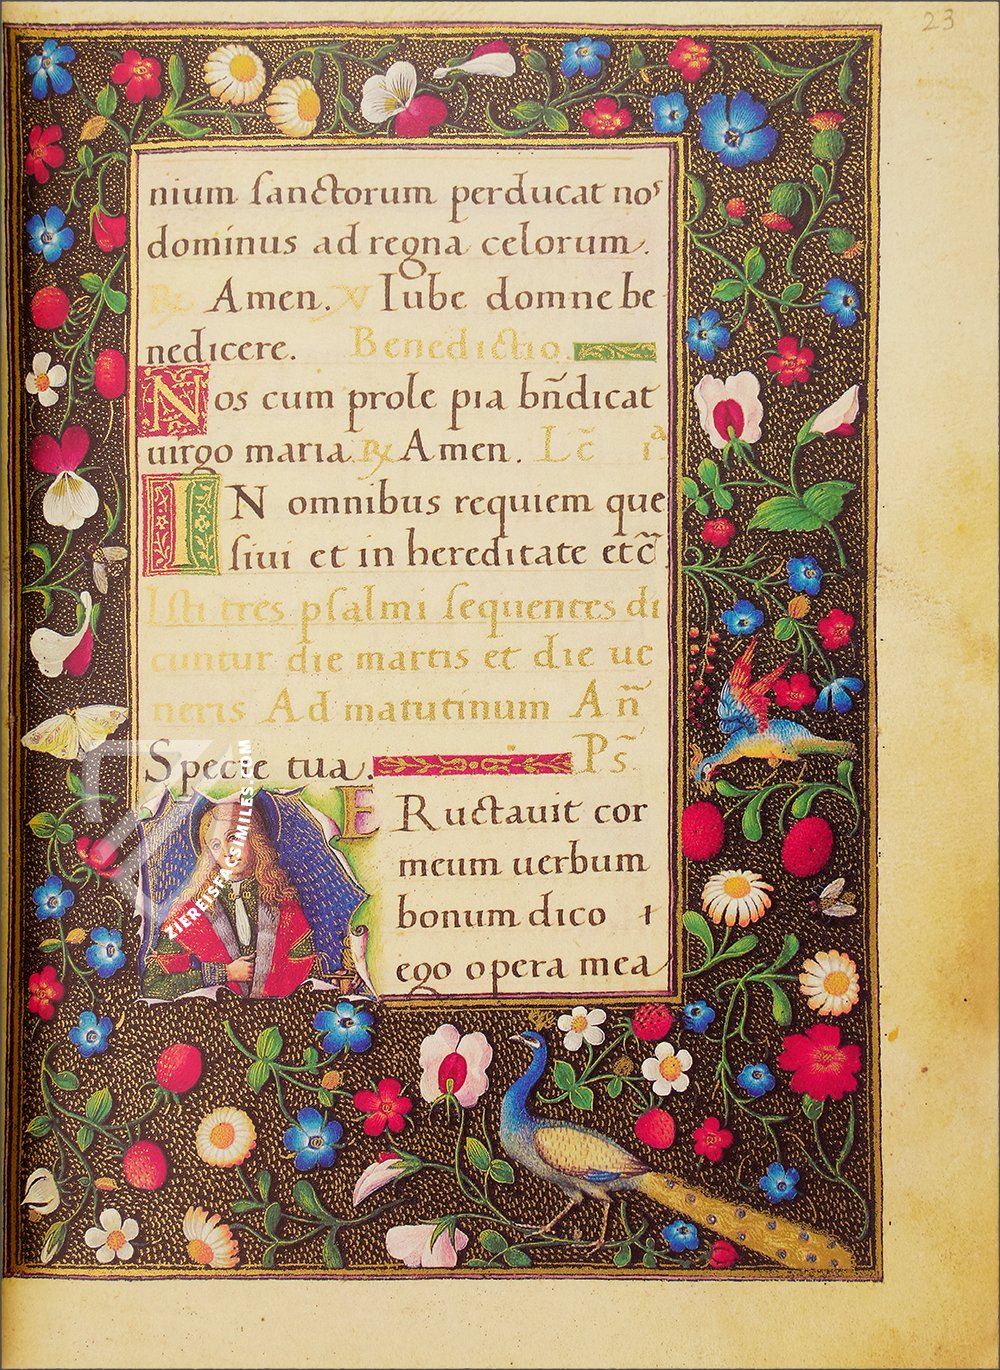 23
nium sanctorum perducat nos
dominus ad regna celorum.
℟ Amen. ℣ Iube domne be
nedicere. Benedictio.
Nos cum prole pia bn̄dicat
uirgo maria ℟ Amen. Lc̄ iᵃ
IN omnibus requiem que
siui et in hereditate etc̄
Isti tres psalmi sequentes di
cuntur die martis et die ue
neris Ad matutinum An̄
Specie tua. Ps̄.
ERuctauit cor
meum uerbum
bonum dico ı
ego opera mea
ZIEREISFACSIMILES.COM